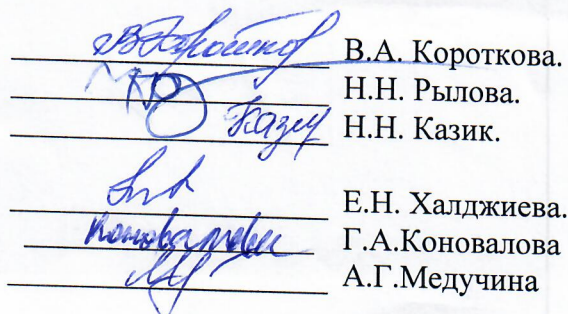 В.А. Короткова.
Н.Н. Рылова.
Казик Н.Н. Казик.
Е.Н. Халджиева.
Коновалова Г.А.Коновалова
А.Г.Медучина